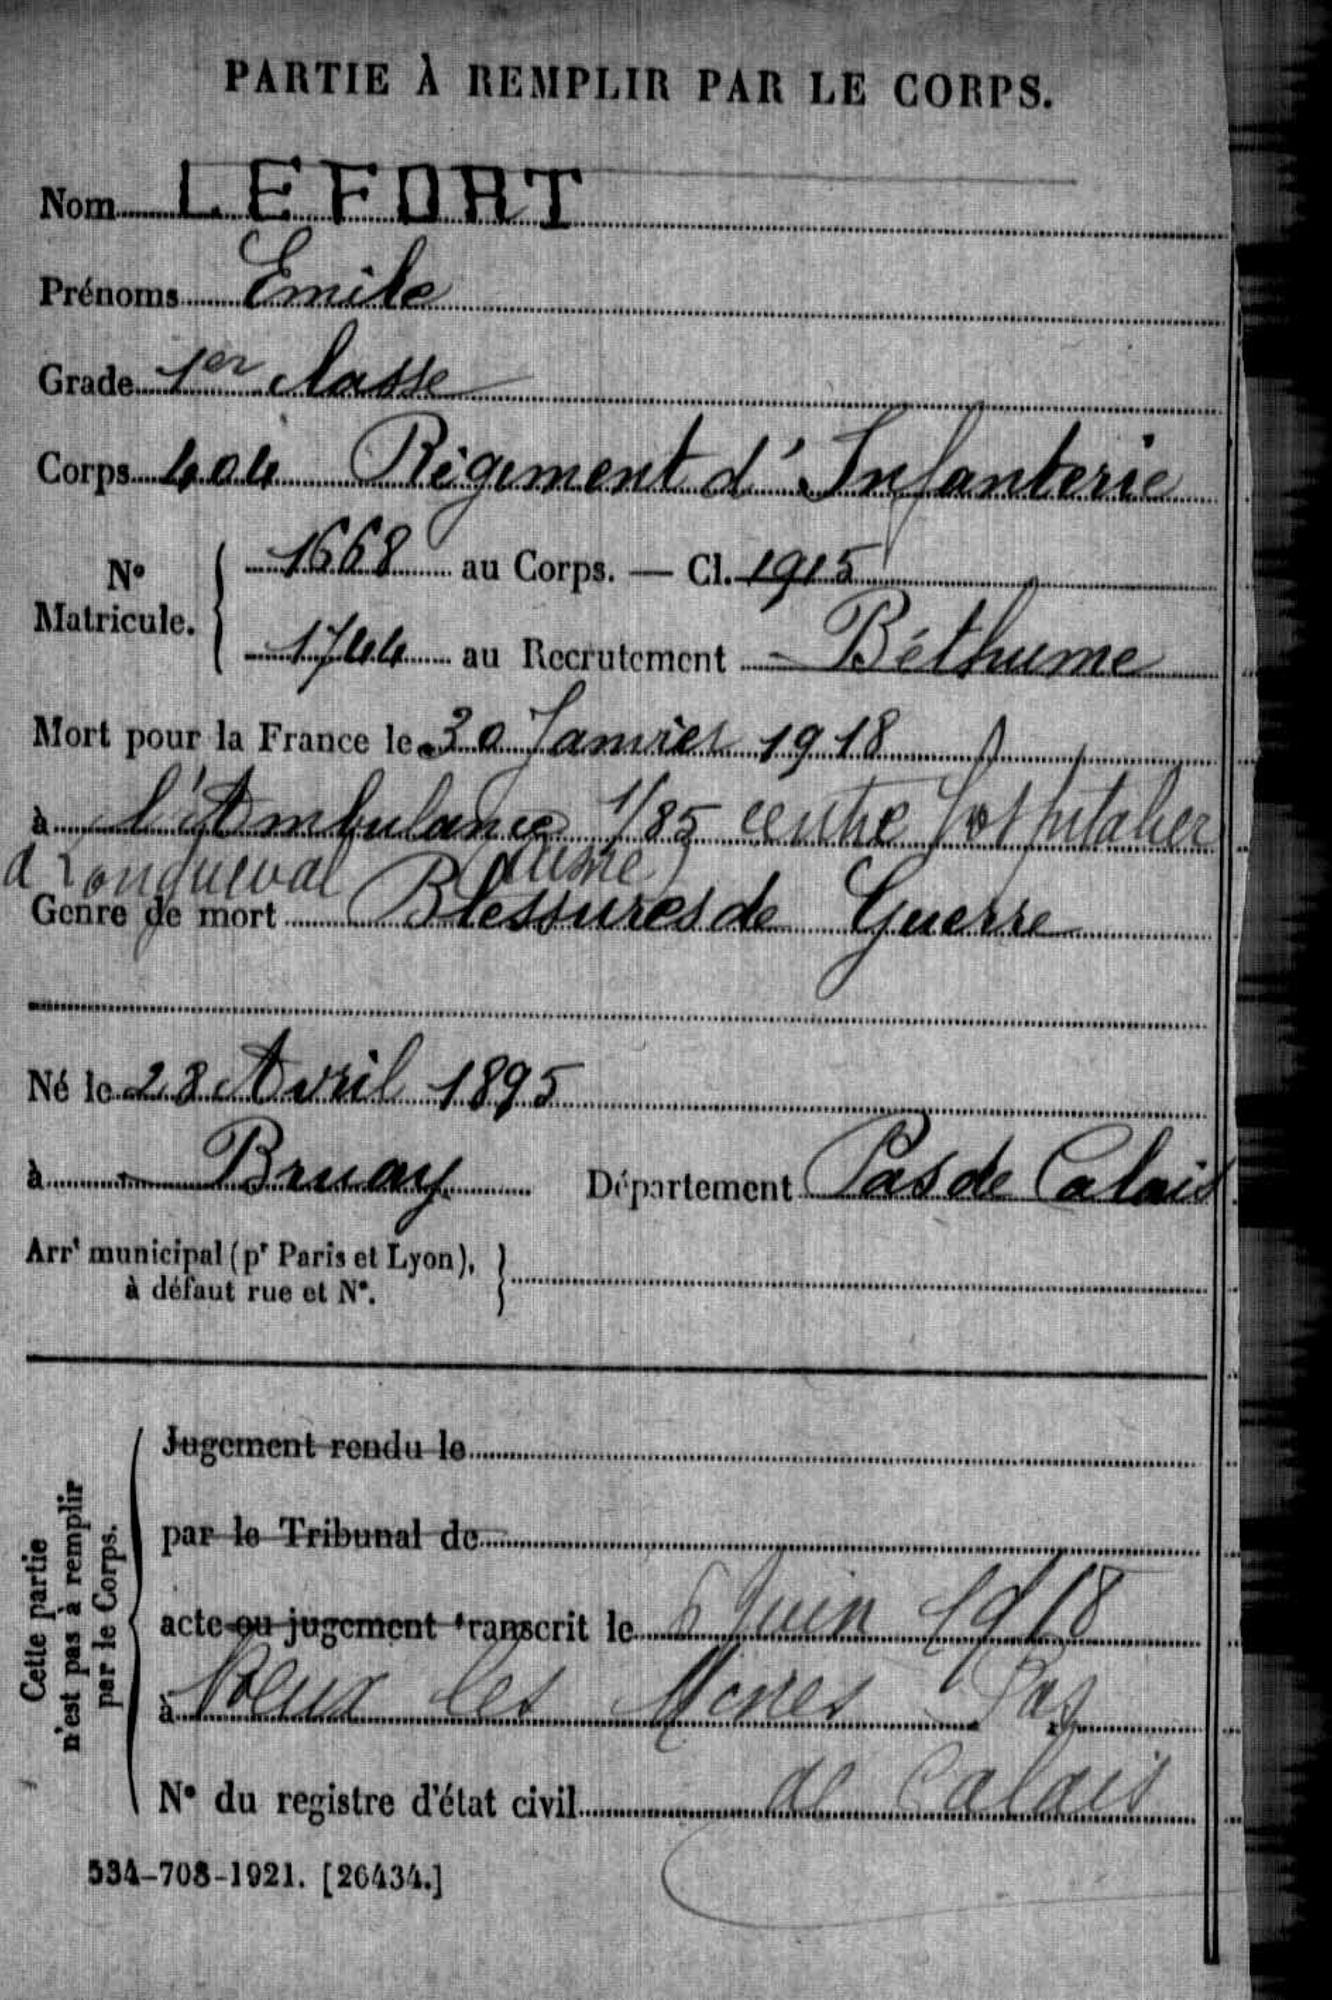 PARTIE À REMPLIR PAR LE CORPS.
Nom LEFORT
Prénoms Emile
Grade 1er classe
Corps 404 Régiment d'Infanterie
N° Matricule. 1668 au Corps. — Cl. 1915
1744 au Recrutement Béthume
Mort pour la France le 30 Janvier 1918
à l'Ambulance 1/85 centre hospitalier
à Longueval (Aisne)
Genre de mort Blessures de Guerre
Né le 28 Avril 1895
à Bruay Département Pas de Calais
Arrt municipal (pr Paris et Lyon),
à défaut rue et N°.
Cette partie
n'est pas à remplir
par le Corps.
Jugement rendu le
par le Tribunal de
acte ou jugement transcrit le 6 Juin 1918
à Noeux les Mines Pas
de Calais
N° du registre d'état civil
534-708-1921. [26434.]